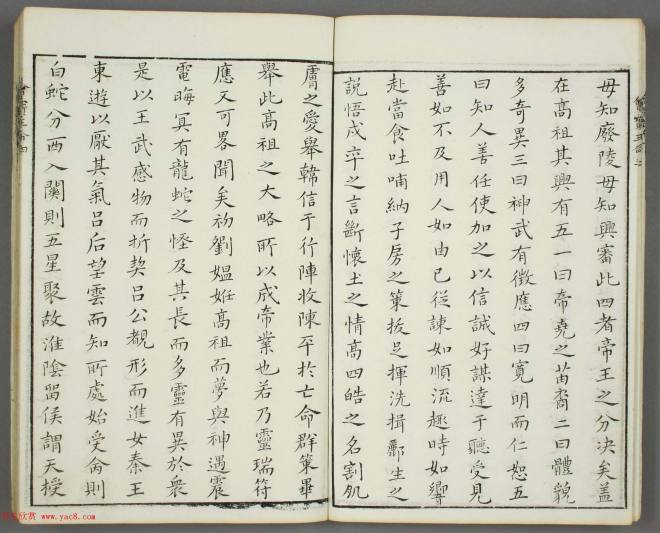 毋知廢陵毋知興審此四者帝王之分决矣盖
在高祖其興有五一曰帝堯之苗裔二曰體貌
多奇異三曰神武有徵應四曰寬明而仁恕五
曰知人善任使加之以信誠好謀達于聽受見
善如不及用人如由己從諫如順流趣時如響
赴當食吐哺納子房之策拔足揮洗揖酈生之
說悟戍卒之言斷懷土之情高四皓之名割肌
膚之愛舉韓信于行陣收陳平於亡命群策畢
舉此髙祖之大略所以成帝業也若乃靈瑞符
應又可畧聞矣初劉媪姙高祖而夢與神遇震
電晦冥有龍蛇之怪及其長而多靈有異於衆
是以王武感物而折契吕公覩形而進女秦王
東遊以厭其氣吕后望雲而知所處始受命則
白蛇分西入關則五星聚故淮陰留侯謂天授
欣赏 www.yac8.com